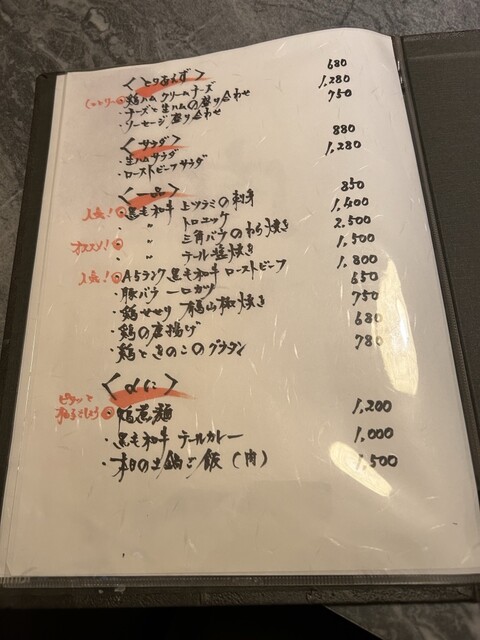 〈とりあえず〉
しっとり 鶏ハム クリームチーズ 680
・チーズと生ハムの盛り合わせ 1,280
・ソーセージ盛り合わせ 750
〈サラダ〉
・生ハムサラダ 880
・ローストビーフサラダ 1,280
〈一品〉
人気! 黒毛和牛 上ツラミの刺身 850
・ 〃 トロユッケ 1,400
オススメ! 〃 三角バラのわら焼き 2,500
・ 〃 テール塩焼き 1,500
人気! A5ランク 黒毛和牛 ローストビーフ 1,800
・豚バラ 一口カツ 650
・鶏せせり 山椒焼き 750
・鶏の唐揚げ 680
・鶏ときのこのグラタン 780
〈〆に〉
ピリッと
柚子こしょう 鶏煮麺 1,200
・黒毛和牛 テールカレー 1,000
・本日の土鍋ご飯(肉) 1,500